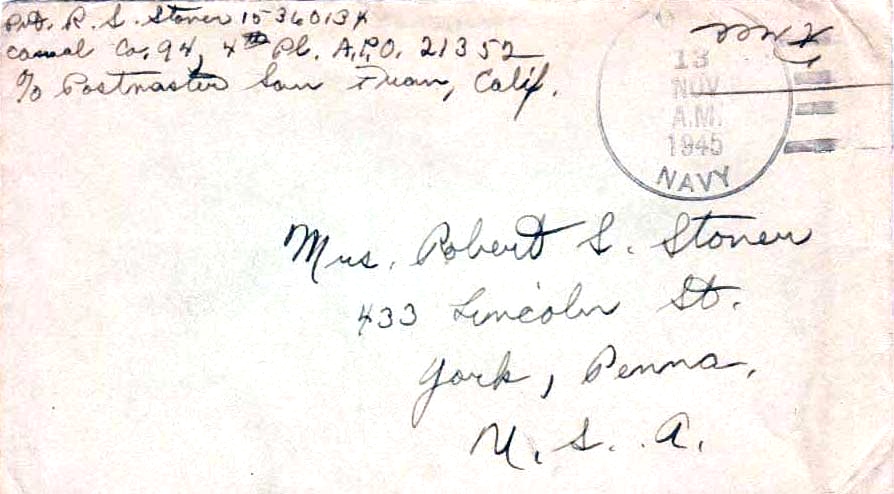 Pvt. R. S. Stoner 15360134
Casual Co. 94, 4th Pl. A.P.O. 21352
c/o Postmaster San Fran, Calif.
Free
13
NOV
A.M.
1945
NAVY
Mrs. Robert S. Stoner
433 Lincoln St.
York, Penna.
U. S. A.